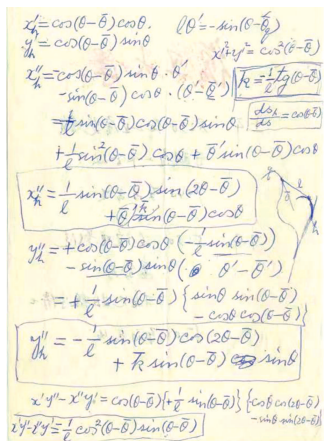 x'ₕ = cos(θ-θ̄) cosθ.    lθ' = -sin(θ-θ̄)
y'ₕ = cos(θ-θ̄) sinθ    x'²+y'² = cos²(θ-θ̄)
x''ₕ = -cos(θ-θ̄) sinθ · θ'    k = 1/l tg(θ-θ̄)
-sin(θ-θ̄) cosθ · (θ'-θ̄')    dsₕ/ds = cos(θ-θ̄)
= 1/l sin(θ-θ̄) cos(θ-θ̄) sinθ
+ 1/l sin²(θ-θ̄) cosθ + θ̄' sin(θ-θ̄) cosθ
x''ₕ = 1/l sin(θ-θ̄) sin(2θ-θ̄)
+ θ̄' sin(θ-θ̄) cosθ
y''ₕ = + cos(θ-θ̄) cosθ (-1/l sin(θ-θ̄))
- sin(θ-θ̄) sinθ (θ'-θ̄')
= + 1/l sin(θ-θ̄) {sinθ sin(θ-θ̄)
- cosθ cos(θ-θ̄)}
y''ₕ = - 1/l sin(θ-θ̄) cos(2θ-θ̄)
+ k̄ sin(θ-θ̄) sinθ
x'y'' - x''y' = cos(θ-θ̄) {+ 1/l sin(θ-θ̄)} {cosθ cos(2θ-θ̄)
- sinθ sin(2θ-θ̄)
x'y''-x''y' = 1/l cos²(θ-θ̄) sin(θ-θ̄)